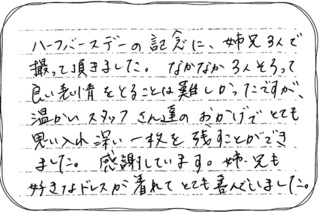 ハーフバースデーの記念に、姉兄3人で
撮って頂きました。なかなか3人そろって
良い表情をとることは難しかったですが、
温かいスタッフさん達のおかげでとても
思い入れ深い一枚を残すことができ
ました。感謝しています。姉兄も
好きなドレスが着れてとても喜んでいました。